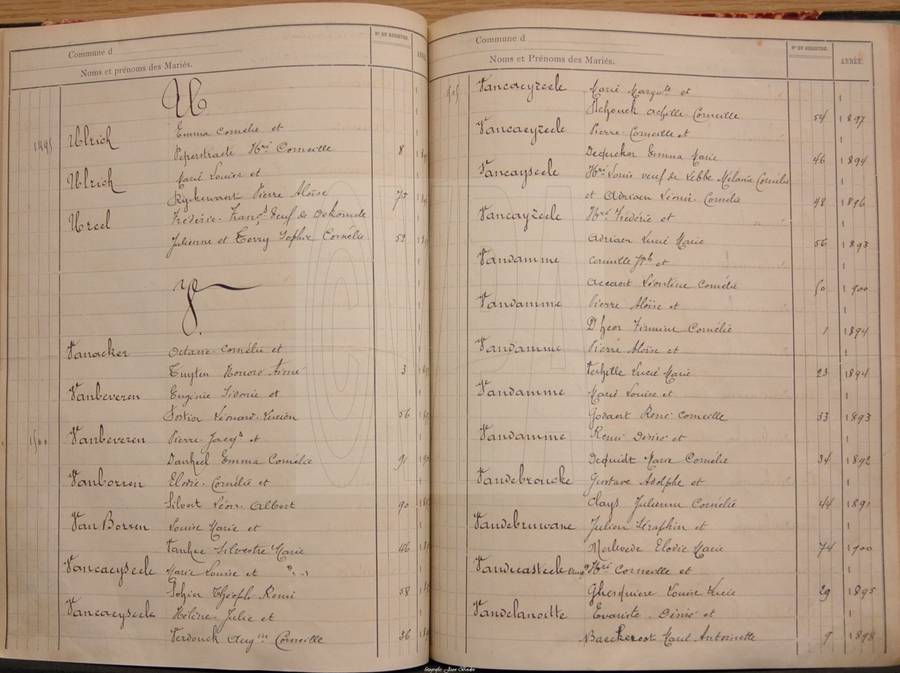 Commune d
N° DU REGISTRE
Noms et prénoms des Mariés.
U
Ulrich Emma Cornélie et
Peperstraete Hri Corneille 8
Ulrich Marie Louise et
Ryckewaert Pierre Aloïse 75
Ureel Frédéric Franç. Veuf de
Julienne et Terry Sophie Cornélie 52
V.
Vanacker Octavie Cornélie et
Tuyten Honoré Aimé 3
Vanbeveren Eugénie Sidonie et
Sortior Léonard Lucien 56
1500
Vanbeveren Pierre Jacq. et
Danheel Emma Cornélie 91
Vanborren Elodie Cornélie et
Silvert Léon Albert 90
Van Borren Louise Marie et
Vanhee Silvestre Marie 46
Vancaeyseele Marie Louise et
Sohier Théoph. Remi 58
Vancaeyseele Hélène Julie et
Verdonck Augin Corneille 36
Commune d
N° DU REGISTRE
ANNÉE.
Noms et Prénoms des Mariés.
Vancaeyzeele Marie Margte et
Achille Corneille 54 1897
Vancaeyzeele Pierre Corneille et
Dequeker Emma Marie 46 1894
Vancayseele Hri Louis veuf de Lebbe Mélanie Cornélie
et Adriaen Léonie Cornélie 48 1896
Vancayzeele Henri Frédéric et
Adriaen Lucie Marie 56 1893
Vandamme Camille Jph et
Accaert Léontine Cornélie 60 1900
Vandamme Pierre Aloïse et
D'heor Firmine Cornélie 1 1894
Vandamme Pierre Aloïse et
Verhelle Lucie Marie 23 1894
Vandamme Marie Louise et
Godaert René Corneille 33 1893
Vandamme Remi Désiré et
Dequidt Marie Cornélie 34 1892
Vandebroucke Gustave Adolphe et
Clays Julienne Cornélie 44 1891
Vandebruwane Julien Séraphin et
Merlevede Elodie Marie 74 1900
Vandecasteele Hri Corneille et
Ghesquiere Louise Lucie 29 1895
Vandelanoitte Evariste Désiré et
Baeckeroot Marie Antoinette 9 1898